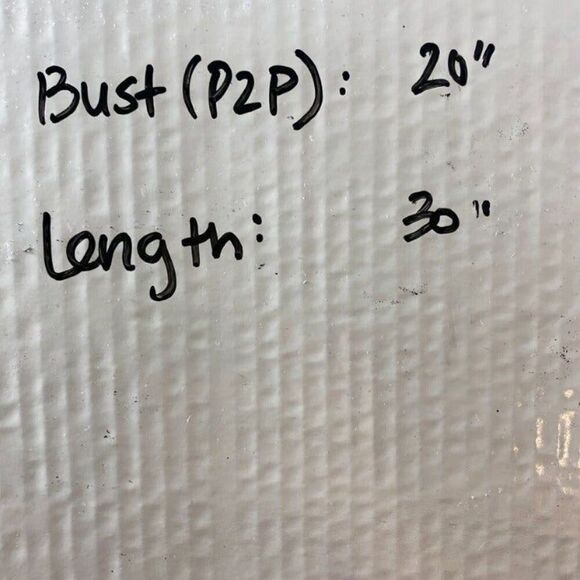 Bust (P2P): 20"
Length: 30"